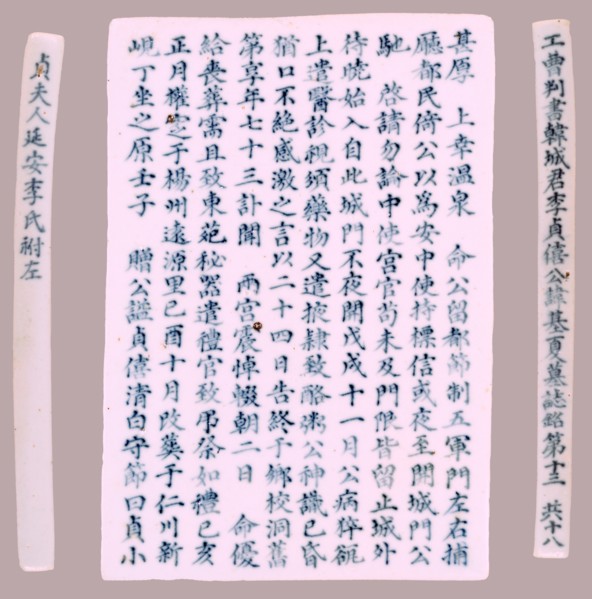 工曹判書韓城君李貞僖公諱基夏墓誌銘第十三 共十八
甚厚 上幸溫泉 命公留都節制五軍門左右捕
廳都民倚公以爲安中使持標信或夜至開城門公
馳 啓請勿論中使宮官苟未及門限皆留止城外
待曉始入自此城門不夜開戊戌十一月公病猝
上遣醫診視須藥物又遣掖隷致酪粥公神識已昏
猶口不絶感激之言以二十四日告終于鄕校洞舊
第享年七十三訃聞 兩宮震悼輟朝二日 命優
給喪葬需且致東苑秘器遣禮官致吊祭如禮己亥
正月權窆于楊州遠源里己酉十月改葬于仁川新
峴丁坐之原壬子 贈公謚貞僖清白守節曰貞小
貞夫人延安李氏祔左